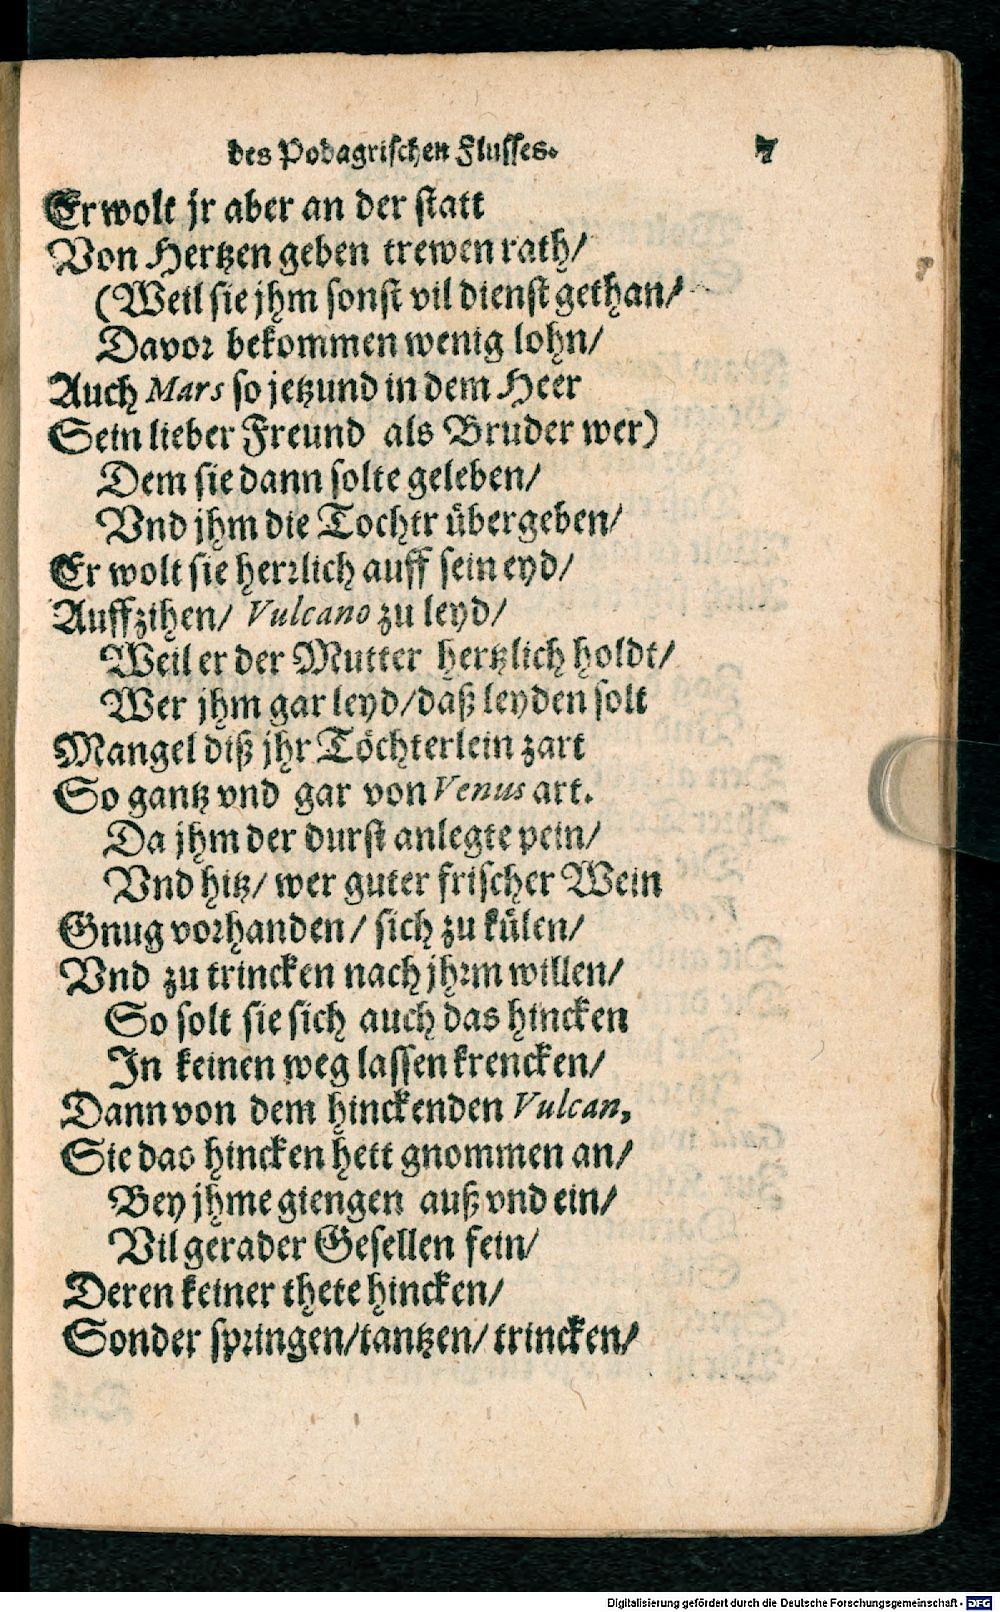 des Podagrischen Flusses. 7
Er wolt jr aber an der statt
Von Hertzen geben trewen rath/
(Weil sie jhm sonst vil dienst gethan/
Davor bekommen wenig lohn/
Auch Mars so jetzund in dem Heer
Sein lieber Freund als Bruder wer)
Dem sie dann solte geleben/
Vnd jhm die Tochtr übergeben/
Er wolt sie herrlich auff sein eyd/
Auffzihen/ Vulcano zu leyd/
Weil er der Mutter hertzlich holdt/
Wer jhm gar leyd/daß leyden solt
Mangel diß jhr Töchterlein zart
So gantz vnd gar von Venus art.
Da jhm der durst anlegte pein/
Vnd hitz/ wer guter frischer Wein
Gnug vorhanden/ sich zu külen/
Vnd zu trincken nach jhrm willen/
So solt sie sich auch das hincken
In keinen weg lassen krencken/
Dann von dem hinckenden Vulcan,
Sie das hincken hett gnommen an/
Bey jhme giengen auß vnd ein/
Vil gerader Gesellen fein/
Deren keiner thete hincken/
Sonder springen/tantzen/ trincken/
Digitalisierung gefördert durch die Deutsche Forschungsgemeinschaft - DFG